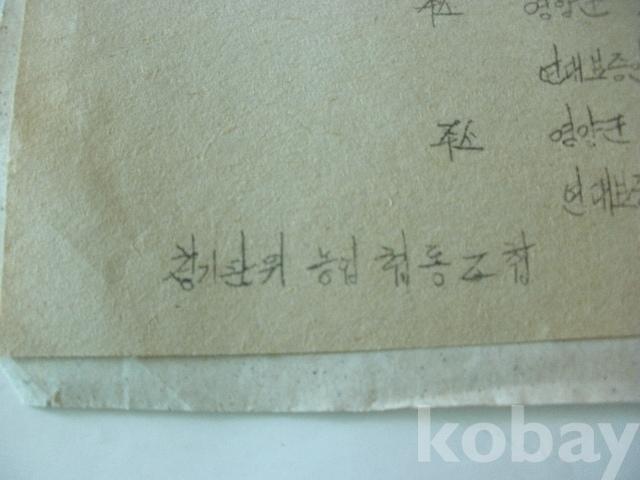 주소 영양군
연대보증인
주소 영양군
연대보증
청기단위 농업 협동조합
kobay